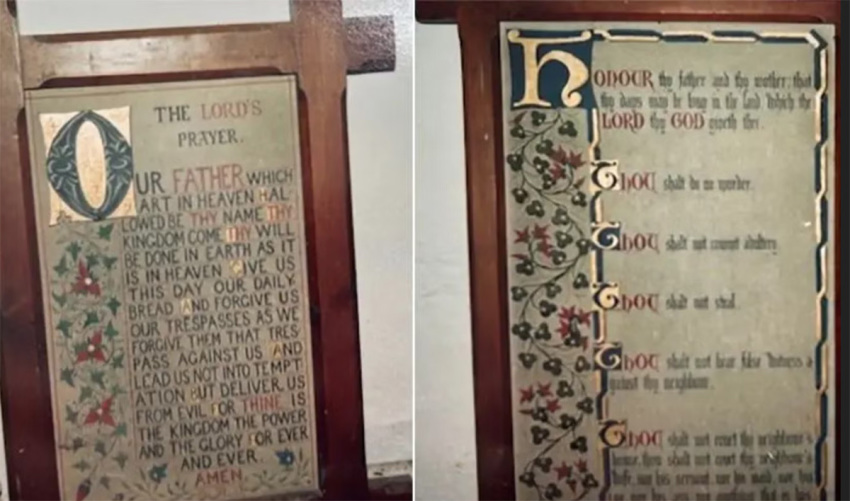 THE LORD'S
PRAYER.
OUR FATHER WHICH
ART IN HEAVEN HAL
LOWED BE THY NAME THY
KINGDOM COME THY WILL
BE DONE IN EARTH AS IT
IS IN HEAVEN GIVE US
THIS DAY OUR DAILY
BREAD AND FORGIVE US
OUR TRESPASSES AS WE
FORGIVE THEM THAT TRES
PASS AGAINST US AND
LEAD US NOT INTO TEMPT
ATION BUT DELIVER US
FROM EVIL FOR THINE IS
THE KINGDOM THE POWER
AND THE GLORY FOR EVER
AND EVER.
AMEN.
HONOUR thy father and thy mother; that
thy days may be long in the land which the
LORD thy GOD giveth thee.
THOU shalt do no murder.
THOU shalt not commit adultery.
THOU shalt not steal.
THOU shalt not bear false witness a
gainst thy neighbour.
THOU shalt not covet thy neighbour's
house, thou shalt not covet thy neighbour's
wife, nor his servant, nor his maid, nor his